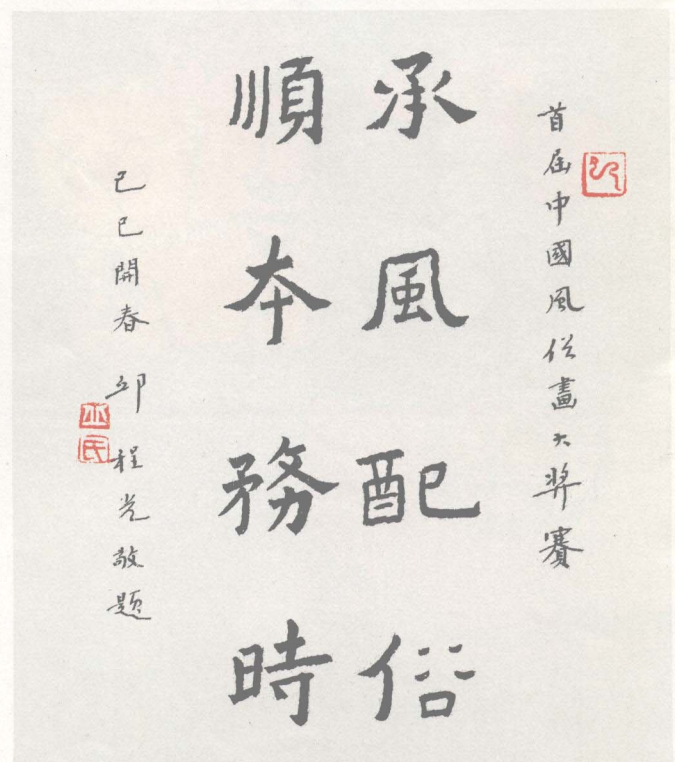 首届中國風俗畫大奖賽
承風配俗
順本務時
己巳開春 邱程光敬题